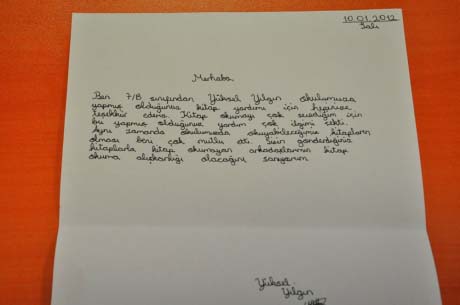 10.01.2012
Salı
Merhaba,
Ben 7/B sınıfından Yüksel Yılgın okulumuza
yapmış olduğunuz kitap yardımı için hepinize
teşekkür ederim. Kitap okumayı çok sevdiğim için
bu yapmış olduğunuz yardım çok ilgimi çekti.
Aynı zamanda okulumuzda okuyabileceğimiz kitapların
olması beni çok mutlu etti. Sizin gönderdiğiniz
kitaplarla kitap okumayan arkadaşlarımın kitap
okuma alışkanlığı olacağını sanıyorum.
Yüksel
Yılgın